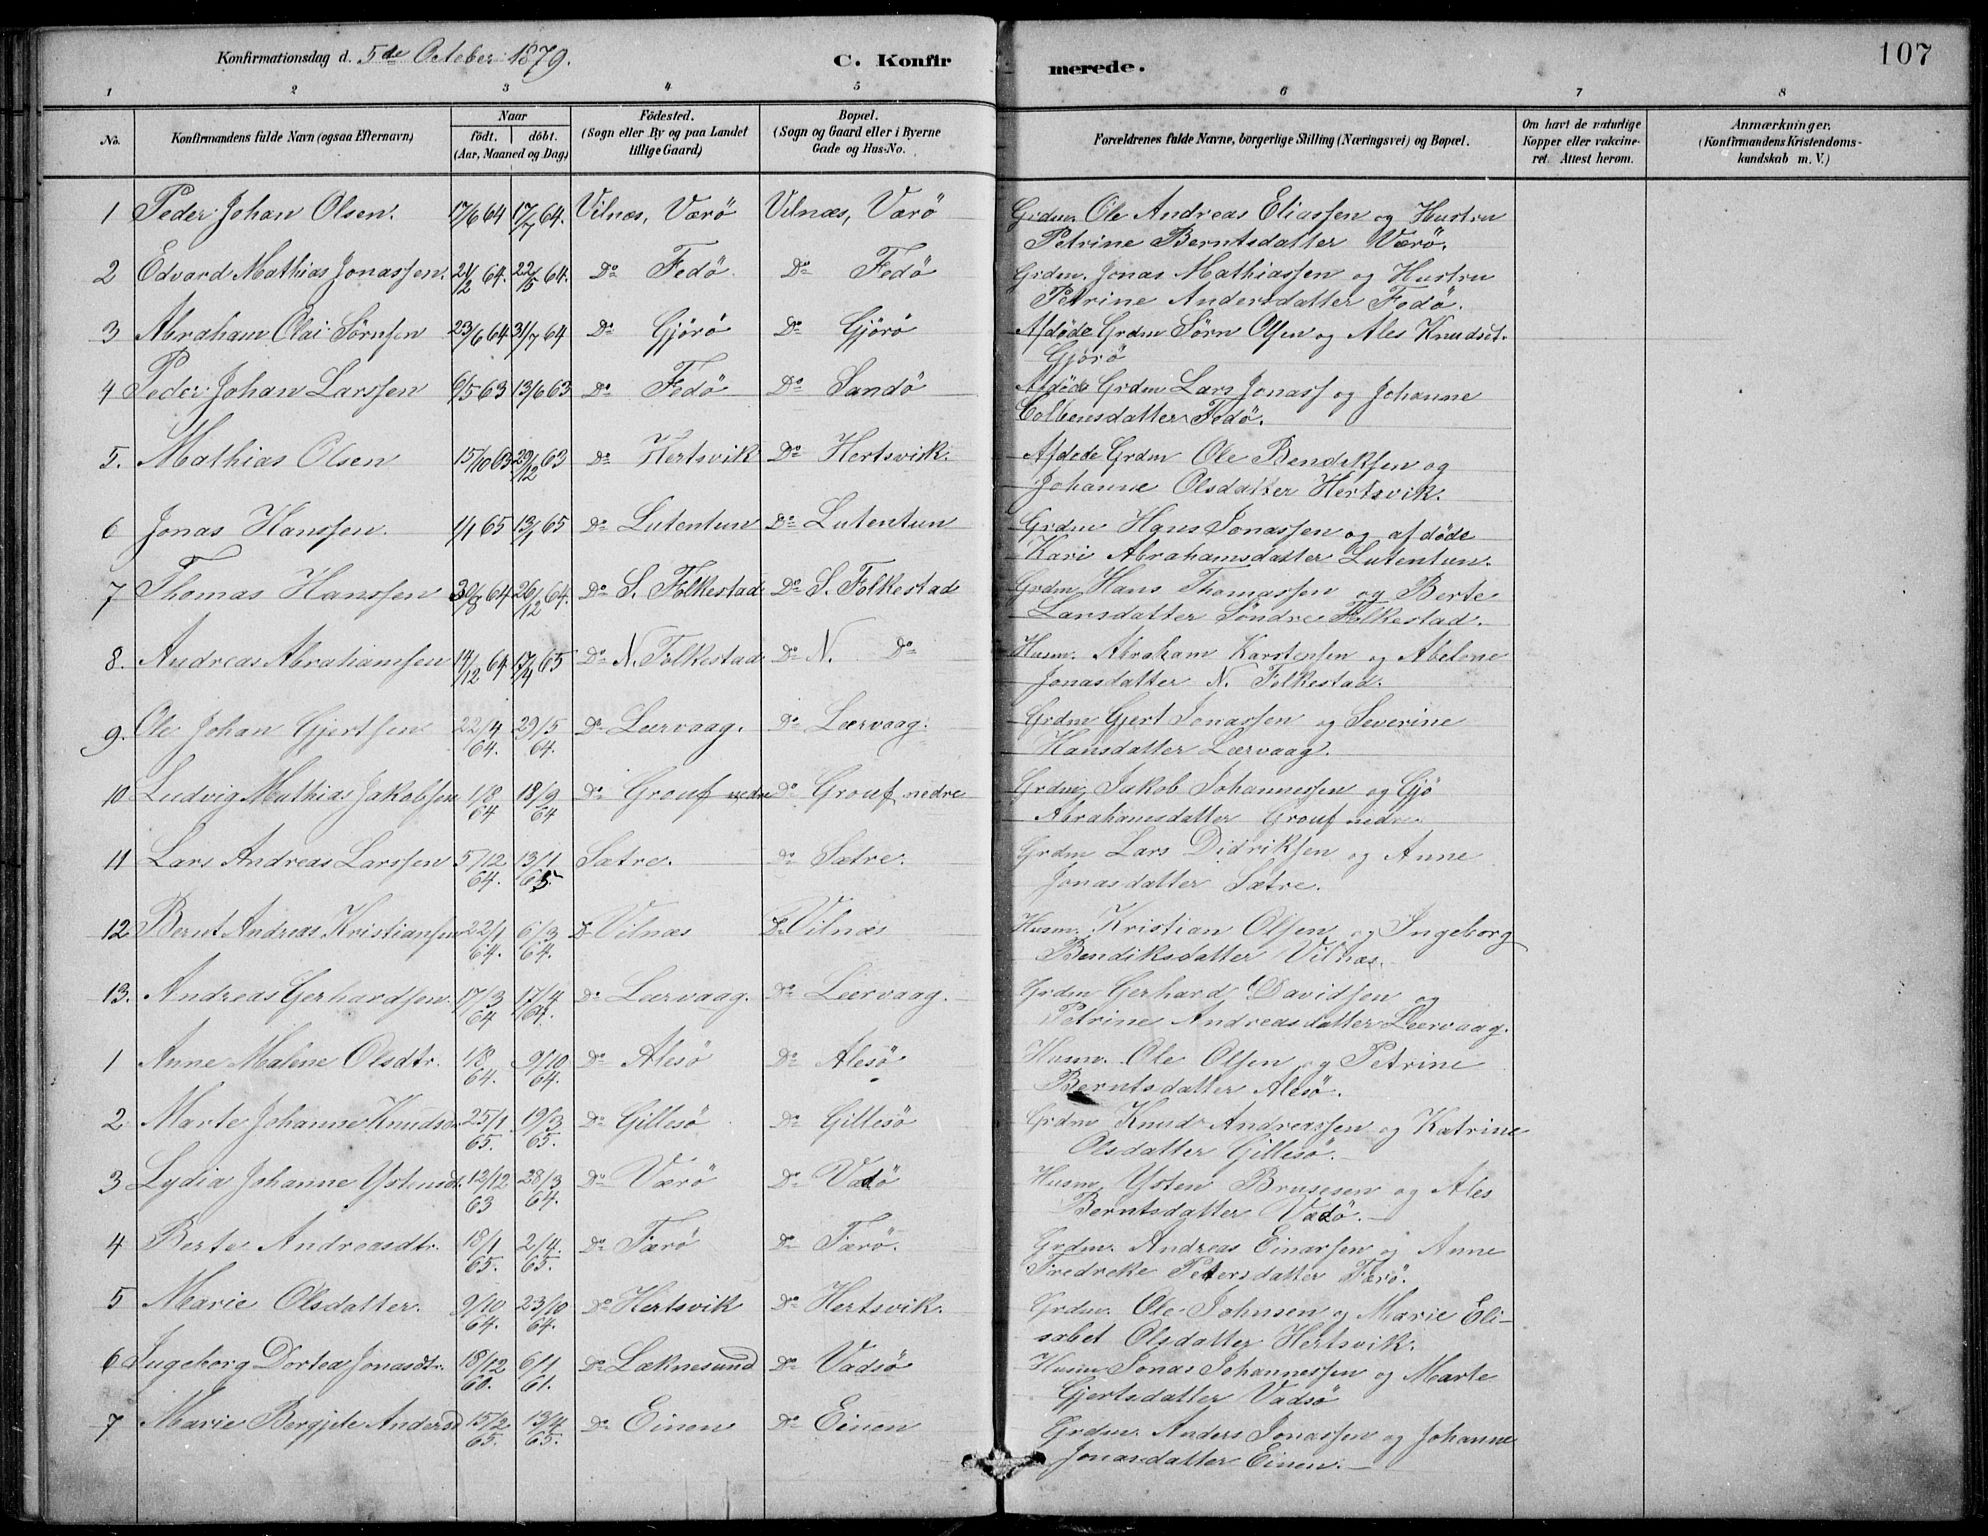 Konfirmationsdag d. 5de October 1879. C. Konfirmerede. 107
1 2 3 4 5 6 7 8
No. Konfirmandens fulde Navn (ogsaa Efternavn) Naar födt. döbt. (Aar, Maaned og Dag) Födested. (Sogn eller By og paa Landet tillige Gaard) Bopæl. (Sogn og Gaard eller i Byerne Gade og Hus-No. Forældrenes fulde Navne, borgerlige Stilling (Næringsvei) og Bopæl. Om havt de naturlige Kopper eller vakcineret. Attest herom. Anmærkninger. (Konfirmandens Kristendomskundskab m. V.)
1 Peder Johan Olsen. 17/6 64 17/7 64. Vilnæs, Værö Vilnæs, Værö Grdm. Ole Andreas Eliassen og Hustru
Petrine Berntsdatter Værö.
2 Edvard Mathias Jonassen. 21/2 64. 22/5 64. Do Fedö Do Fedö Grdm. Jonas Mathiassen og Hustru
Petrine Andersdatter Fedö.
3 Abraham Olai Sörnsen 23/6 64 31/7 64 Do Gjörö Do Gjörö Afdöde Grdm Sörn Olsen og Ales Knudsdt.
Gjörö
4 Peder Johan Larssen 6/5 63 13/6 63 Do Fedö Do Sandö Afdöde Grdm Lars Jonass og Johanne
Colbensdatter Fedö.
5. Mathias Olsen 15/10 63 29/12 63 Do Hertsvik Do Hertsvik. Afdede Grdm Ole Bendiksen og
Johanne Olsdatter Hertsvik.
6 Jonas Hanssen. 1/1 65 13/1 65 Do Lutentun Do Lutentun Grdm Hans Jonassen og afdöde
Kari Abrahamsdatter Lutentun.
7 Thomas Hanssen 30/8 64 26/12 64. Do S. Folkestad Do S. Folkestad Grdm Hans Thomassen og Berte
Larsdatter Söndre Folkestad.
8. Andreas Abrahamsen 14/12 64 17/4 65 Do N. Folkestad Do N. Do Husm. Abraham Karstensen og Abelone
Jonasdatter N. Folkestad.
9. Ole Johan Gjertsen 22/4 64. 29/5 64. Do Leervaag. Do Lærvaag. Grdm Gjert Jonassen og Severine
Hansdatter Lærvaag.
10 Ludvig Mathias Jakobsen 1/8 64 18/9 64 Do Grouf nedre Do Grouf nedre Grdm. Jakob Johannessen og Gjö
Abrahamsdatter Grouf nedre
11 Lars Andreas Larssen 5/12 64. 13/1 65 Sætre. Do Sætre. Grdm Lars Didriksen og Anne
Jonasdatter Sætre.
12 Bernt Andreas Kristiansen 22/1 64. 6/3 64. Do Vilnæs Do Vilnæs Husm. Kristian Olsen og Ingeborg
Bendiksdatter Vilnæs.
13. Andreas Gerhardsen. 17/3 64 17/4 64. Do Leervaag. Do Leervaag. Grdm Gerhard Davidsen og
Petrine Andreasdatter Leervaag.
1 Anne Malene Olsdtr. 1/8 64. 9/10 64. Do Alesö Do Alesö Husm. Ole Olsen og Petrine
Berntsdatter Alesö.
2 Marte Johanne Knudsd 25/1 65. 19/3 65. Do Gillesö Do Gillesö Grdm Knud Andreassen og Katrine
Olsdatter Gillesö.
3 Lydia Johanne Ystensdt. 12/12 63 28/3 64. Do Værö Do Vadö Husm Ysten Brusesen og Ales
Berntsdatter Vadö.
4 Berte Andreasdtr. 18/1 65. 2/4. 65. Do Færö Do Færö. Grdm. Andreas Einarsen og Anne
Fredreke Petersdatter Færö.
5 Marie Olsdatter. 9/10 64. 23/10 64. Do Hertsvik Do Hertsvik. Grdm. Ole Johnsen og Marie Eli-
sabet Olsdatter Hertsvik.
6 Ingeborg Dortea Jonasdtr. 18/12 60. 6/1 61. Do Læknesund Do Vadsö Husm Jonas Johannessen og Marte
Gjertsdatter Vadsö
7 Marie Bergjete Andersd 15/2 65. 13/4 65. Do Einen Do Einen Grdm. Anders Jonassen og Johanne
Jonasdatter Einen.